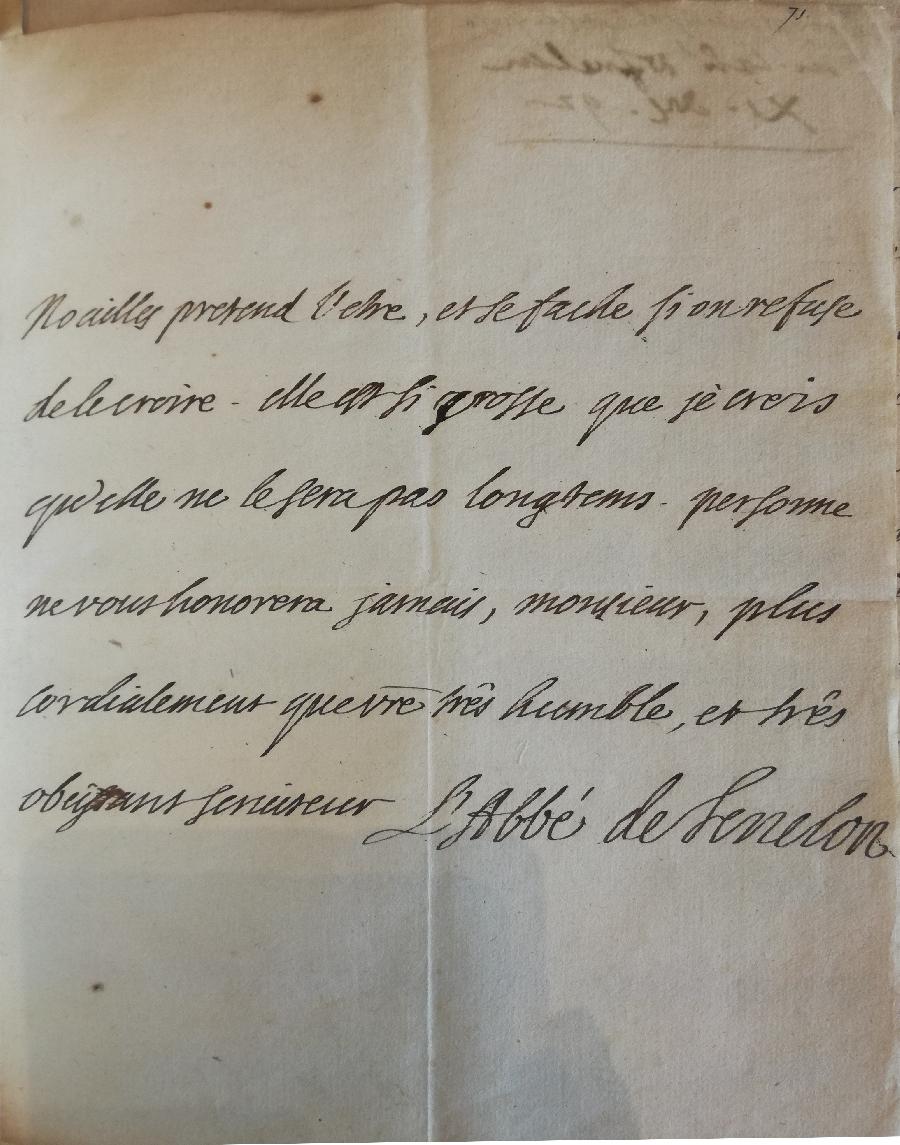 71
Noailles pretend l'etre, et se fache si on refuse
de le croire - elle est si grosse que je crois
qu'elle ne le sera pas longtems - personne
ne vous honorera jamais, monsieur, plus
cordialement que vre três humble, et três
obeissant serviteur L'Abbé de Fenelon